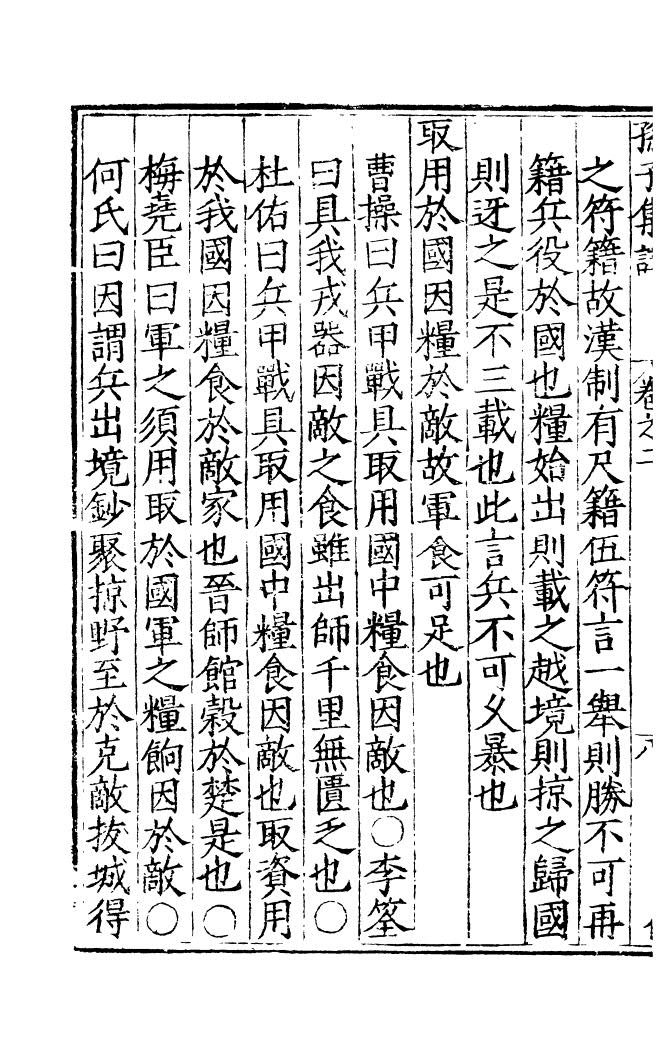 孫子集註 卷之二 八
之符籍故漢制有尺籍伍符言一舉則勝不可再
籍兵役於國也糧始出則載之越境則掠之歸國
則迓之是不三載也此言兵不可久暴也
取用於國因糧於敵故軍食可足也
曹操曰兵甲戰具取用國中糧食因敵也○李筌
曰具我戎器因敵之食雖出師千里無匱乏也○
杜佑曰兵甲戰具取用國中糧食因敵也取資用
於我國因糧食於敵家也晉師館穀於楚是也○
梅堯臣曰軍之須用取於國軍之糧餉因於敵○
何氏曰因謂兵出境鈔聚掠野至於克敵拔城得